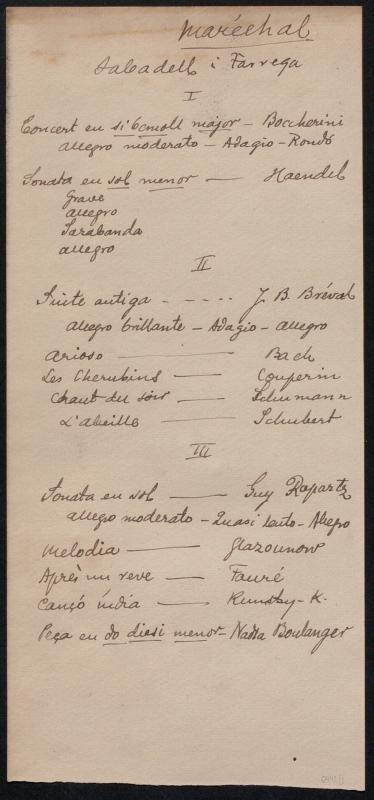 Maréchal
Sabadell i Tarrega
I
Concert en si bemoll major - Boccherini
allegro moderato - Adagio - Rondó
Sonata en sol menor - Haendel
Grave
allegro
Sarabanda
allegro
II
Suite antiga - - - - - J. B. Bréval
allegro brillante - Adagio - allegro
Arioso - Bach
Les Cherubins - Couperin
Chant du soir - Schumann
L'abeille - Schubert
III
Sonata en sol - Guy Ropartz
allegro moderato - Quasi lento - Allegro
Melodia - Glazounow
Après un reve - Fauré
Cançó índia - Rimsky-K.
Peça en do diesi menor - Nadia Boulanger